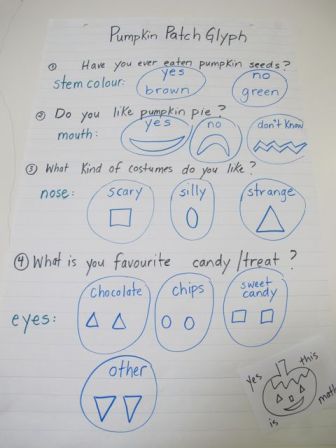 Pumpkin Patch Glyph
① Have you ever eaten pumpkin seeds?
stem colour: yes brown no green
② Do you like pumpkin pie?
mouth: yes no don't know
③ What kind of costumes do you like?
nose: scary silly strange
④ What is you favourite candy/treat?
eyes: chocolate chips sweet candy
other
yes this
is math